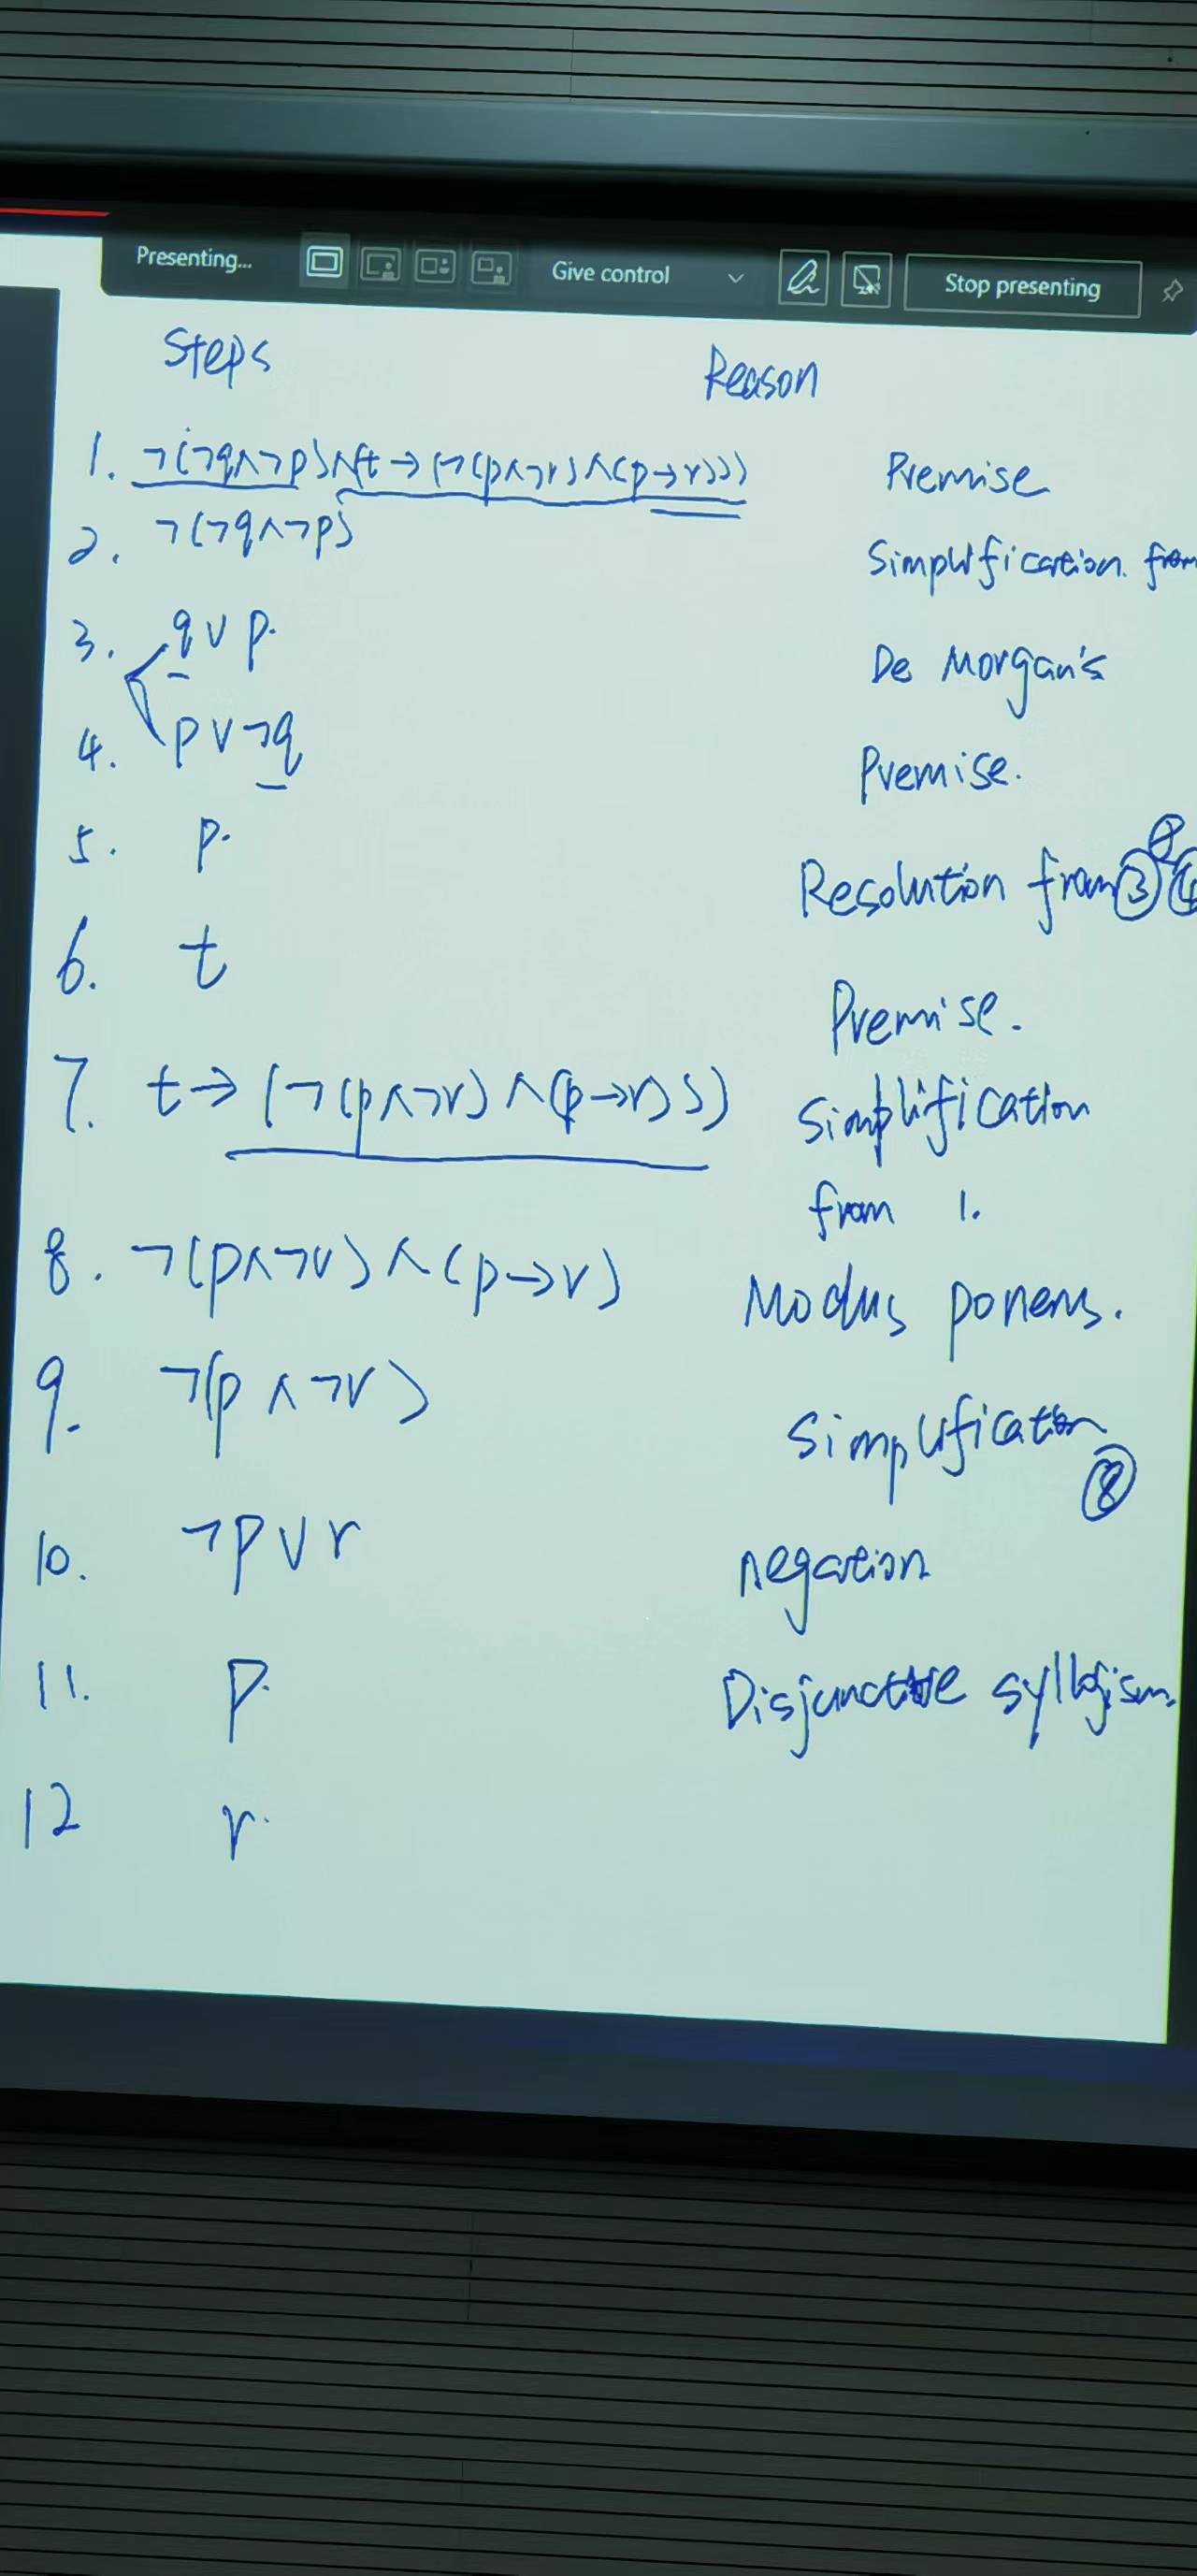 Presenting... Give control Stop presenting
Steps Reason
1. ¬(¬q∧¬p)∧(t→(¬(p∧¬r)∧(p→r))) Premise
2. ¬(¬q∧¬p) Simplification from
3. q∨p. De Morgan's
4. p∨¬q Premise.
5. p. Resolution from ③ ④
6. t Premise.
7. t→(¬(p∧¬r)∧(p→r))) Simplification
from 1.
8. ¬(p∧¬r)∧(p→r) Modus ponens.
9. ¬(p∧¬r) Simplification
⑧
10. ¬p∨r negation
11. p. Disjunctive syllogism.
12 r.